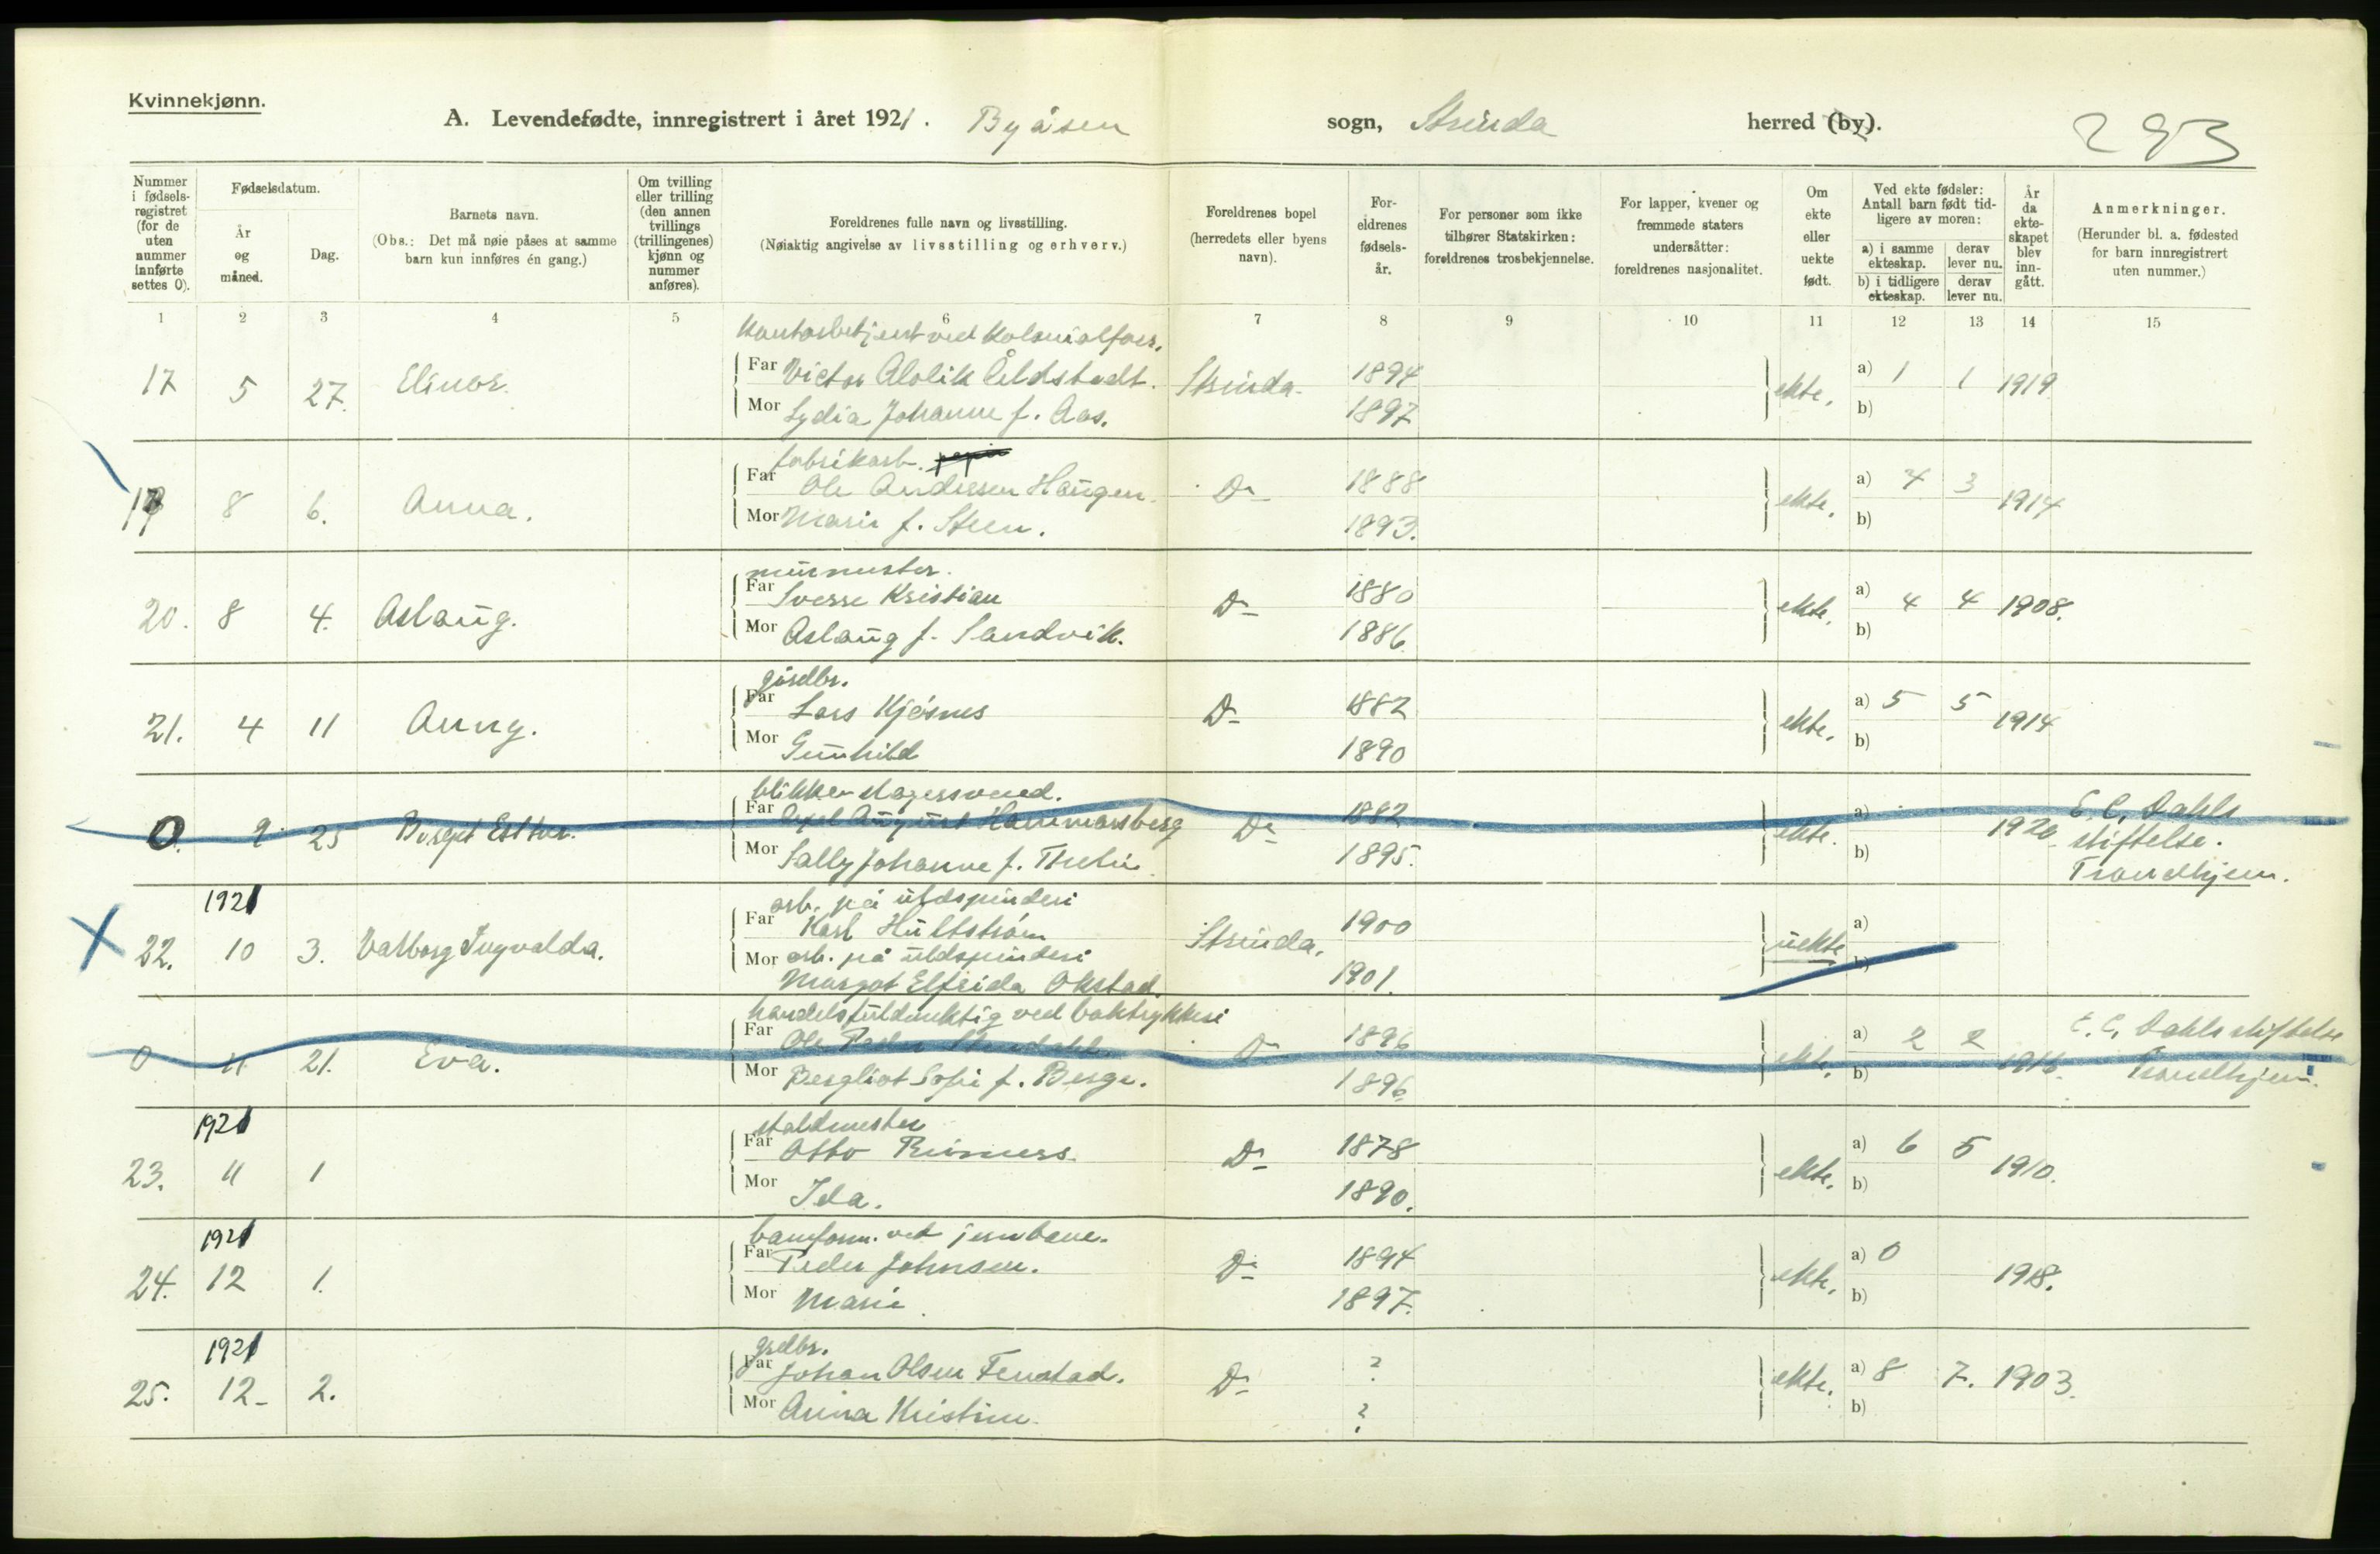 Kvinnekjønn.
A. Levendefødte, innregistrert i året 1921. Byåsen sogn, Strinda herred (by). 293
Nummer i fødsels-registret (for de uten nummer innførte settes 0).
Fødselsdatum.
År og måned.
Dag.
Barnets navn.
(Obs.: Det må nøie påses at samme barn kun innføres én gang.)
Om tvilling eller trilling (den annen tvillings (trillingenes) kjønn og nummer anføres).
Foreldrenes fulle navn og livsstilling.
(Nøiaktig angivelse av livsstilling og erhverv.)
Foreldrenes bopel (herredets eller byens navn).
For-eldrenes fødsels-år.
For personer som ikke tilhører Statskirken: foreldrenes trosbekjennelse.
For lapper, kvener og fremmede staters undersåtter: foreldrenes nasjonalitet.
Om ekte eller uekte født.
Ved ekte fødsler: Antall barn født tid-ligere av moren:
a) i samme ekteskap.
derav lever nu.
b) i tidligere ekteskap.
derav lever nu.
År da ekte-skapet blev inn-gått.
Anmerkninger.
(Herunder bl. a. fødested for barn innregistrert uten nummer.)
1 2 3 4 5 6 7 8 9 10 11 12 13 14 15
17 5 27. Elinor. Far Victor Strinda. 1894 ekte. a) 1 1 1919
Mor Lydia Johanne f. Aas. 1897 b)
fabrikarb.
8 6. Anna. Far Ole Andersen Haugen. Do 1888 ekte. a) 4 3 1914
Mor Marie f. Steen. 1893. b)
murmester.
20. 8 4. Aslaug. Far Sverre Kristian Do 1880 ekte. a) 4 4 1908.
Mor Aslaug f. Sandvik. 1886 b)
gårdbr.
21. 4 11 Anny. Far Lars Kjøsnes Do 1882 ekte. a) 5 5 1914
Mor Gunhild 1890 b)
blikkenslagersvend.
0. 9 25 Borgit Esther. Far Axel August Hammarsberg Do 1882 ekte. a) 1920. E. C. Dahls stiftelse. Trondhjem.
Mor Sally Johanne f. 1895. b)
1921 arb. på uldspinderi
22. 10 3. Valborg Ingvalda. Far Karl Hultström Strinda. 1900 uekte a)
Mor arb. på uldspinderi b)
Margot Elfrida Okstad. 1901.
handelsfuldmektig ved boktrykkeri
0 11 21. Eva. Far Ole Peder Do 1896 ekte. a) 2 2 1916. E. C. Dahls stiftelse
Mor Bergliot Sofie f. Berge. 1896 b) Trondhjem.
1921 staldmester
23. 11 1 Far Otto Do 1878 ekte. a) 6 5 1910.
Mor Ida. 1890. b)
1921 baneform. ved jernbane.
24. 12 1. Far Peder Johnsen. Do 1894 ekte. a) 0 1918.
Mor Marie 1897. b)
1921 grdbr.
25. 12 2. Far Johan Olsen Fenstad. Do ? ekte. a) 8 7. 1903.
Mor Anna Kristine ? b)